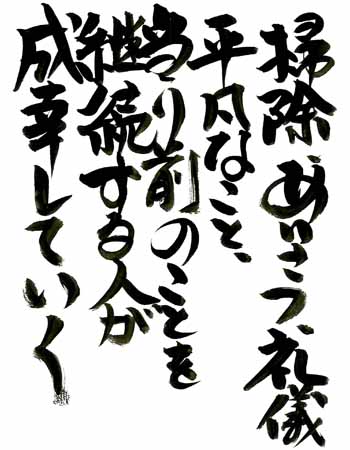 掃除、あいさつ、礼儀
平凡なこと、
当り前のことを
継続する人が
成幸していく